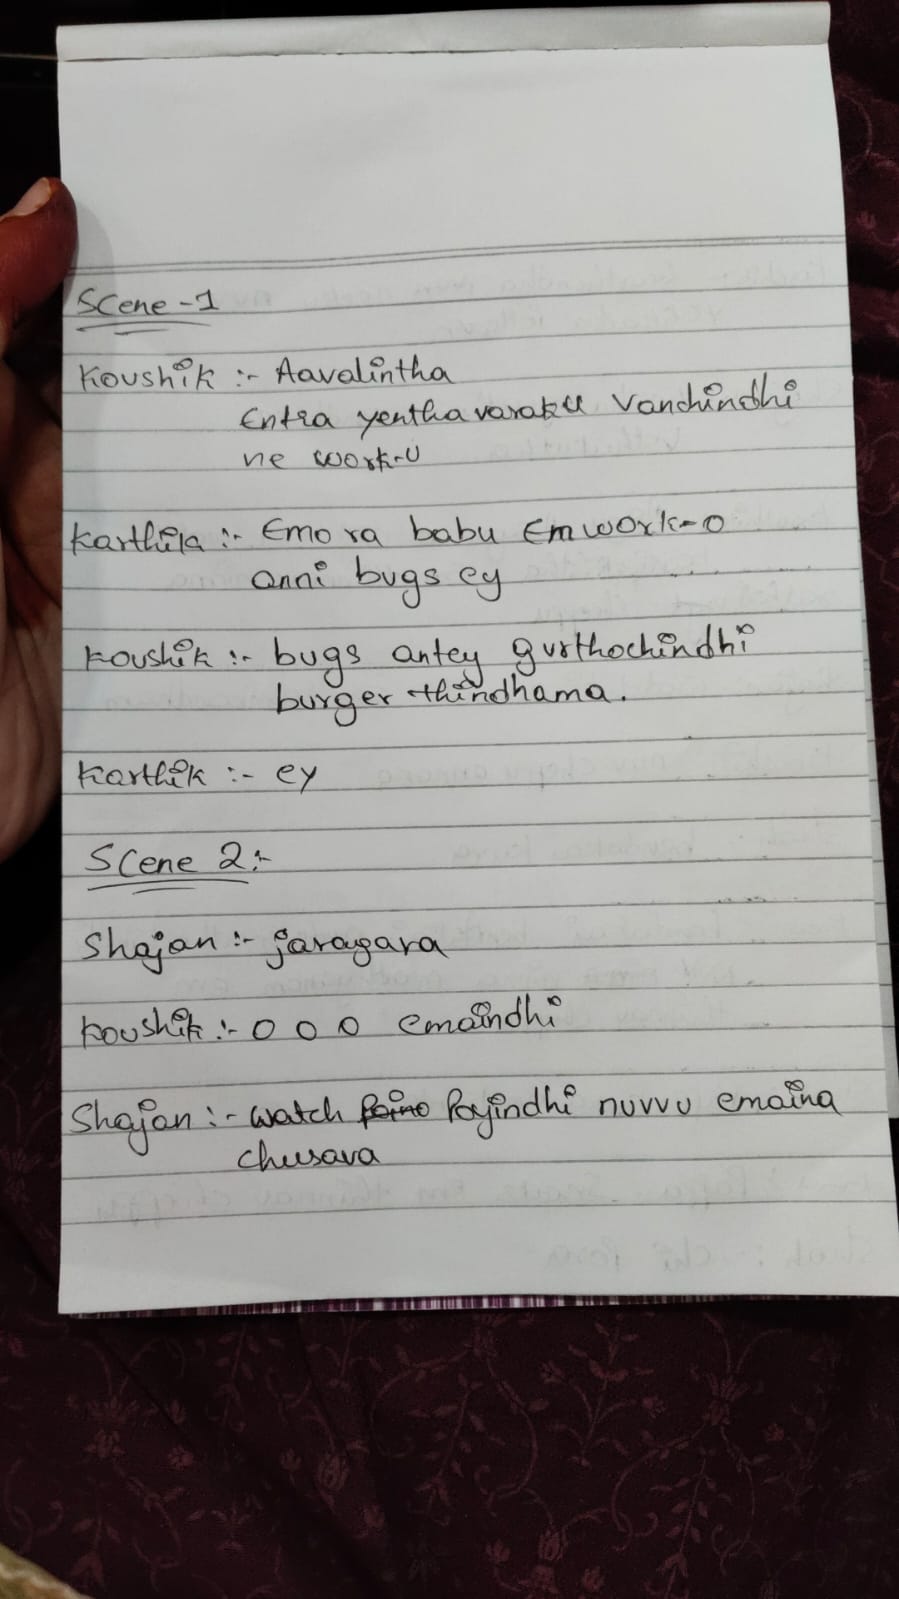 Scene - 1
Koushik :- Aavalintha
Entra yentha varaku Vanchindhi
ne work-u
Karthik :- Emo ra babu Em work-o
anni bugs ey
Koushik :- bugs antey gurthochindhi
burger thindhama.
Karthik :- ey
Scene 2 :-
Shajan :- jaragara
Koushik :- O O O emaindhi
Shajan :- watch Poyindhi nuvvu emaina
chusava